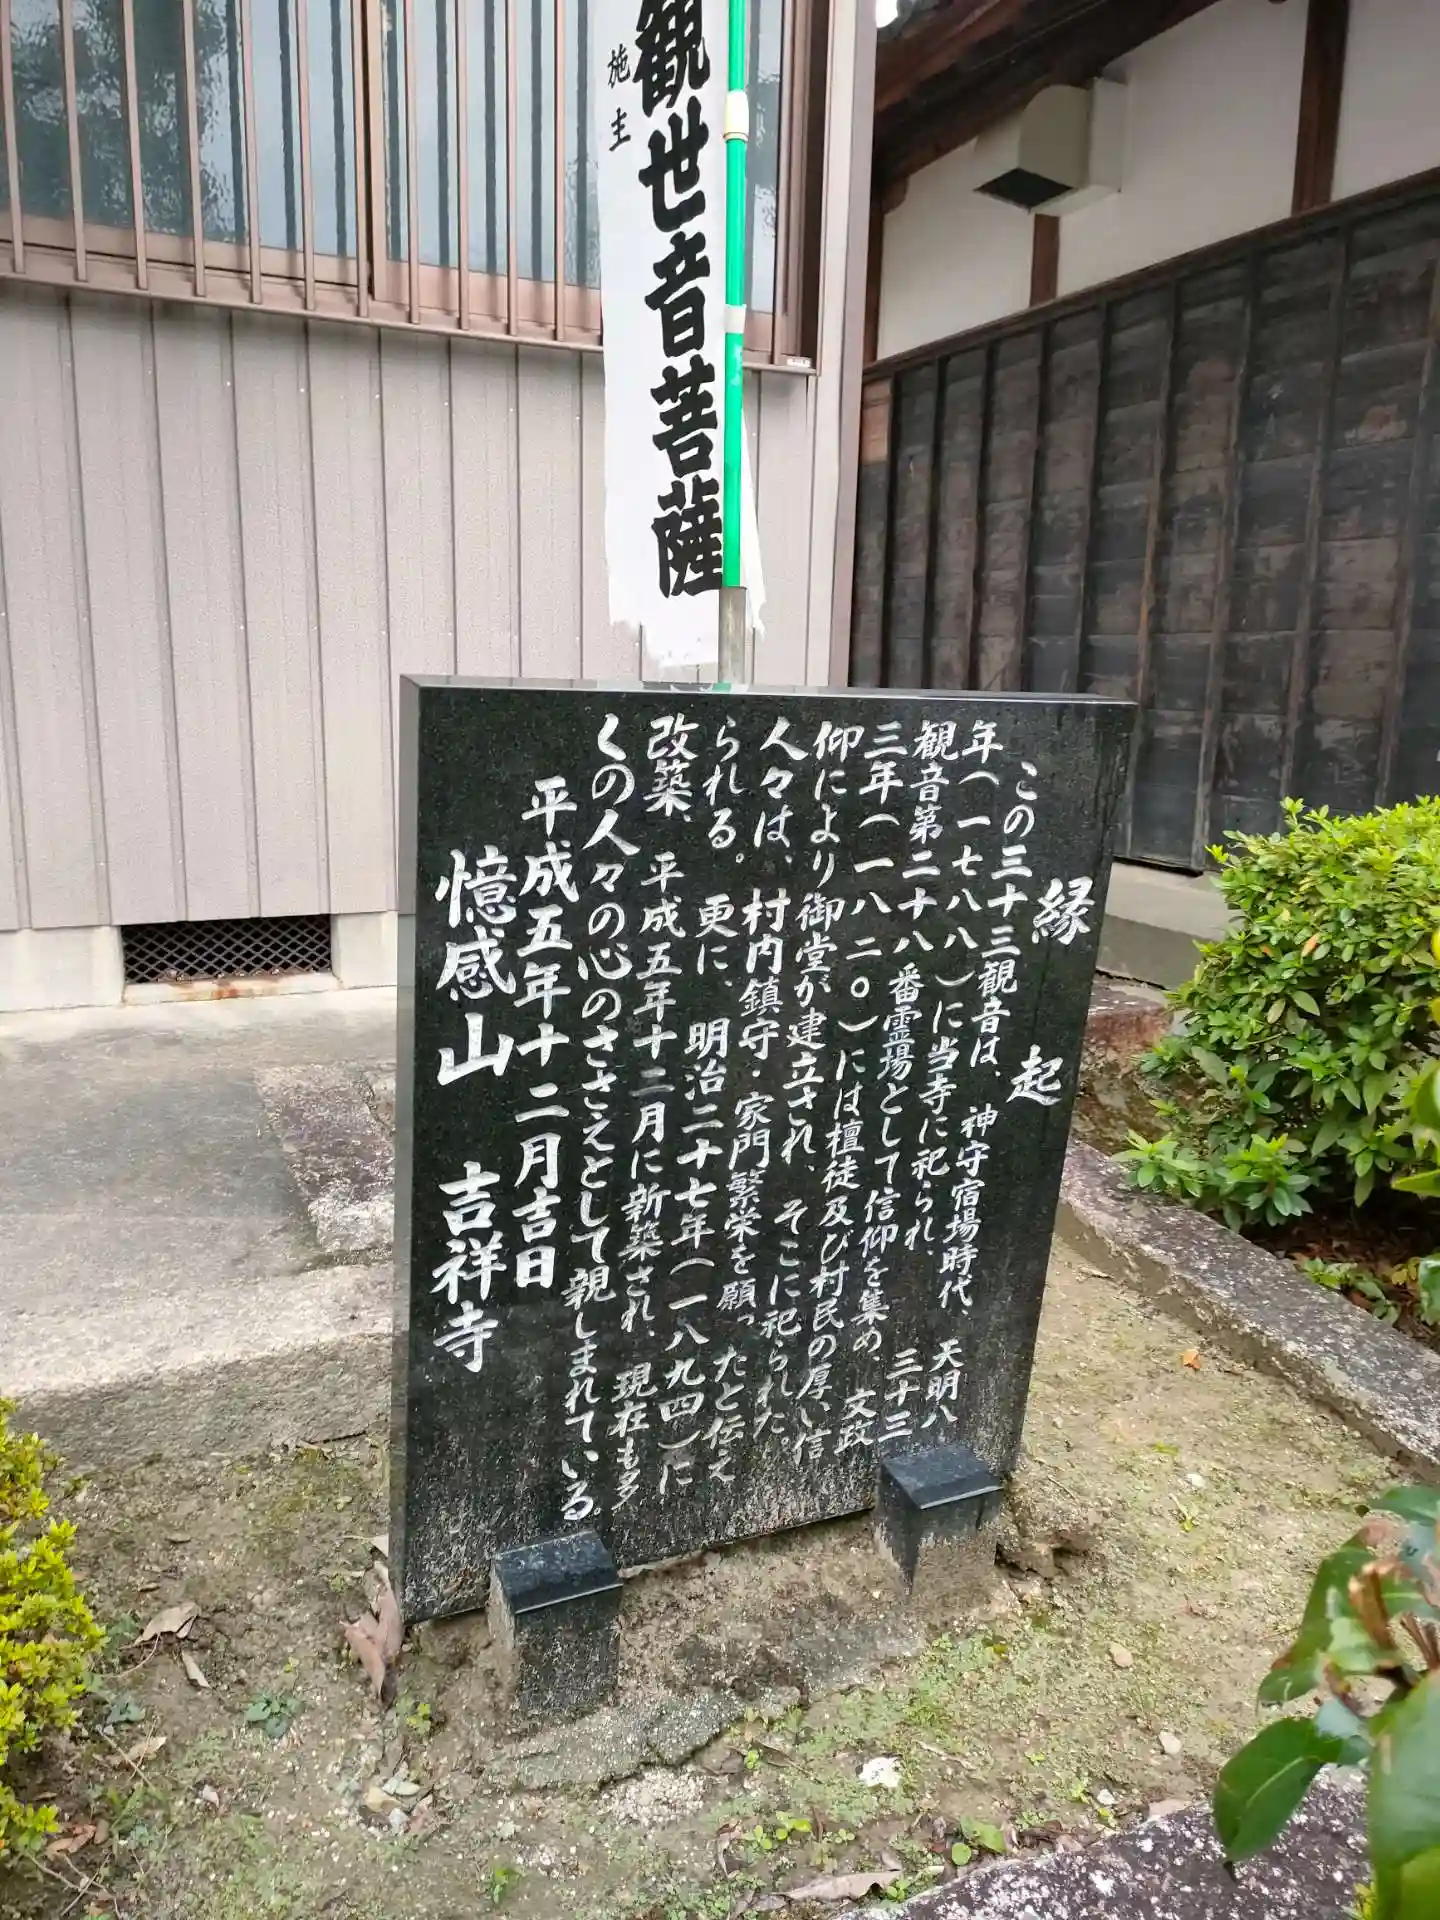 観世音菩薩
施主
縁起
この三十三観音は、神守宿場時代、天明八
年(一七八八)に当寺に祀られ、三十三
観音第二十八番霊場として信仰を集め、文政
三年(一八二〇)には檀徒及び村民の厚い信
仰により御堂が建立され、そこに祀られた。
人々は、村内鎮守・家門繁栄を願ったと伝え
られる。更に、明治二十七年(一八九四)に
改築、平成五年十二月に新築され、現在も多
くの人々の心のささえとして親しまれている。
平成五年十二月吉日
憶感山 吉祥寺